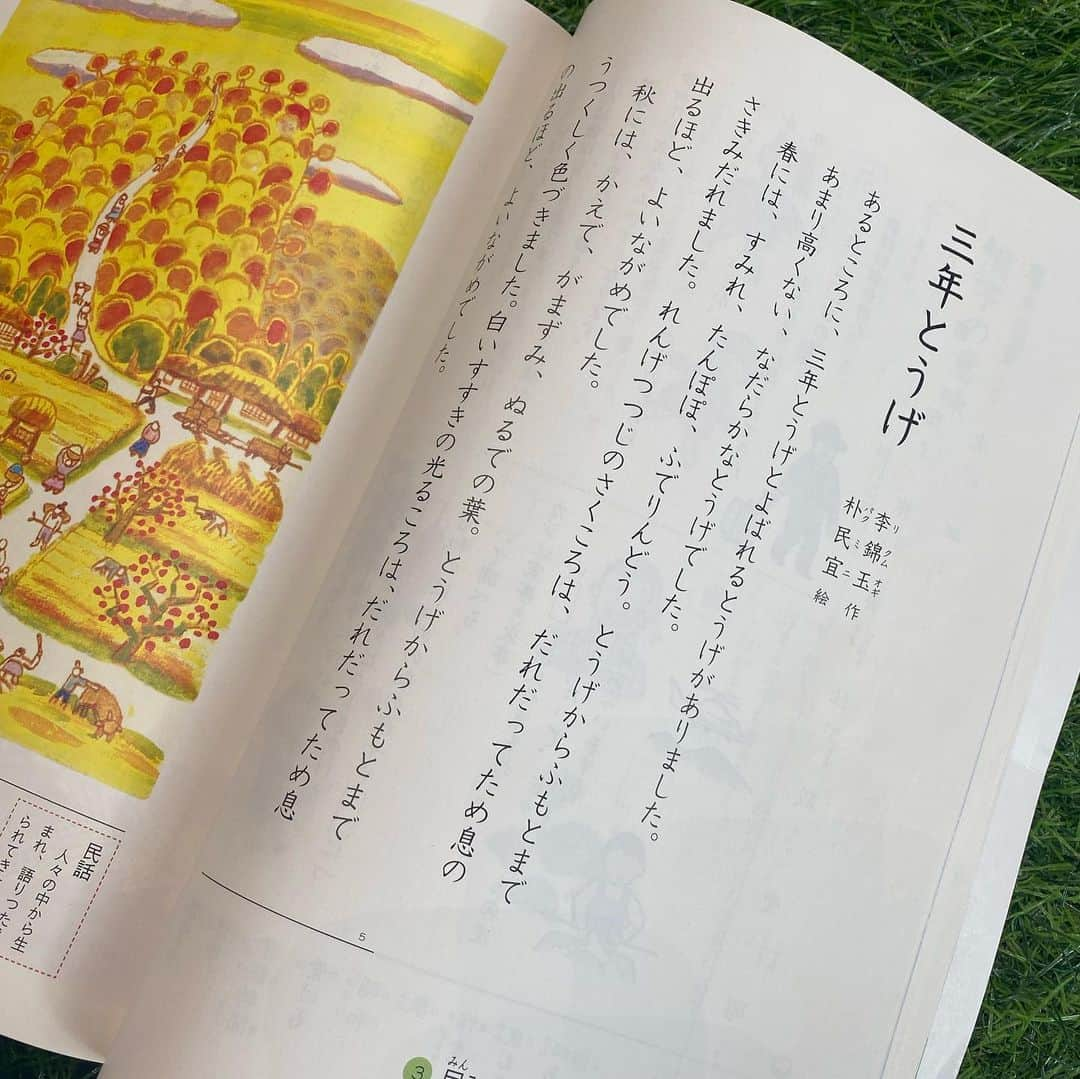 三年とうげ
李錦玉 作
リ クム オギ
朴民宜 絵
パク ミニ
あるところに、三年とうげとよばれるとうげがありました。
あまり高くない、なだらかなとうげでした。
春には、すみれ、たんぽぽ、ふでりんどう。とうげからふもとまで
さきみだれました。れんげつつじのさくころは、だれだってため息の
出るほど、よいながめでした。
秋には、かえで、がまずみ、ぬるでの葉。とうげからふもとまで
うつくしく色づきました。白いすすきの光るころは、だれだってため息
の出るほど、よいながめでした。
5
民話
人々の中から生
まれ、語りつた
られてき
3
みん